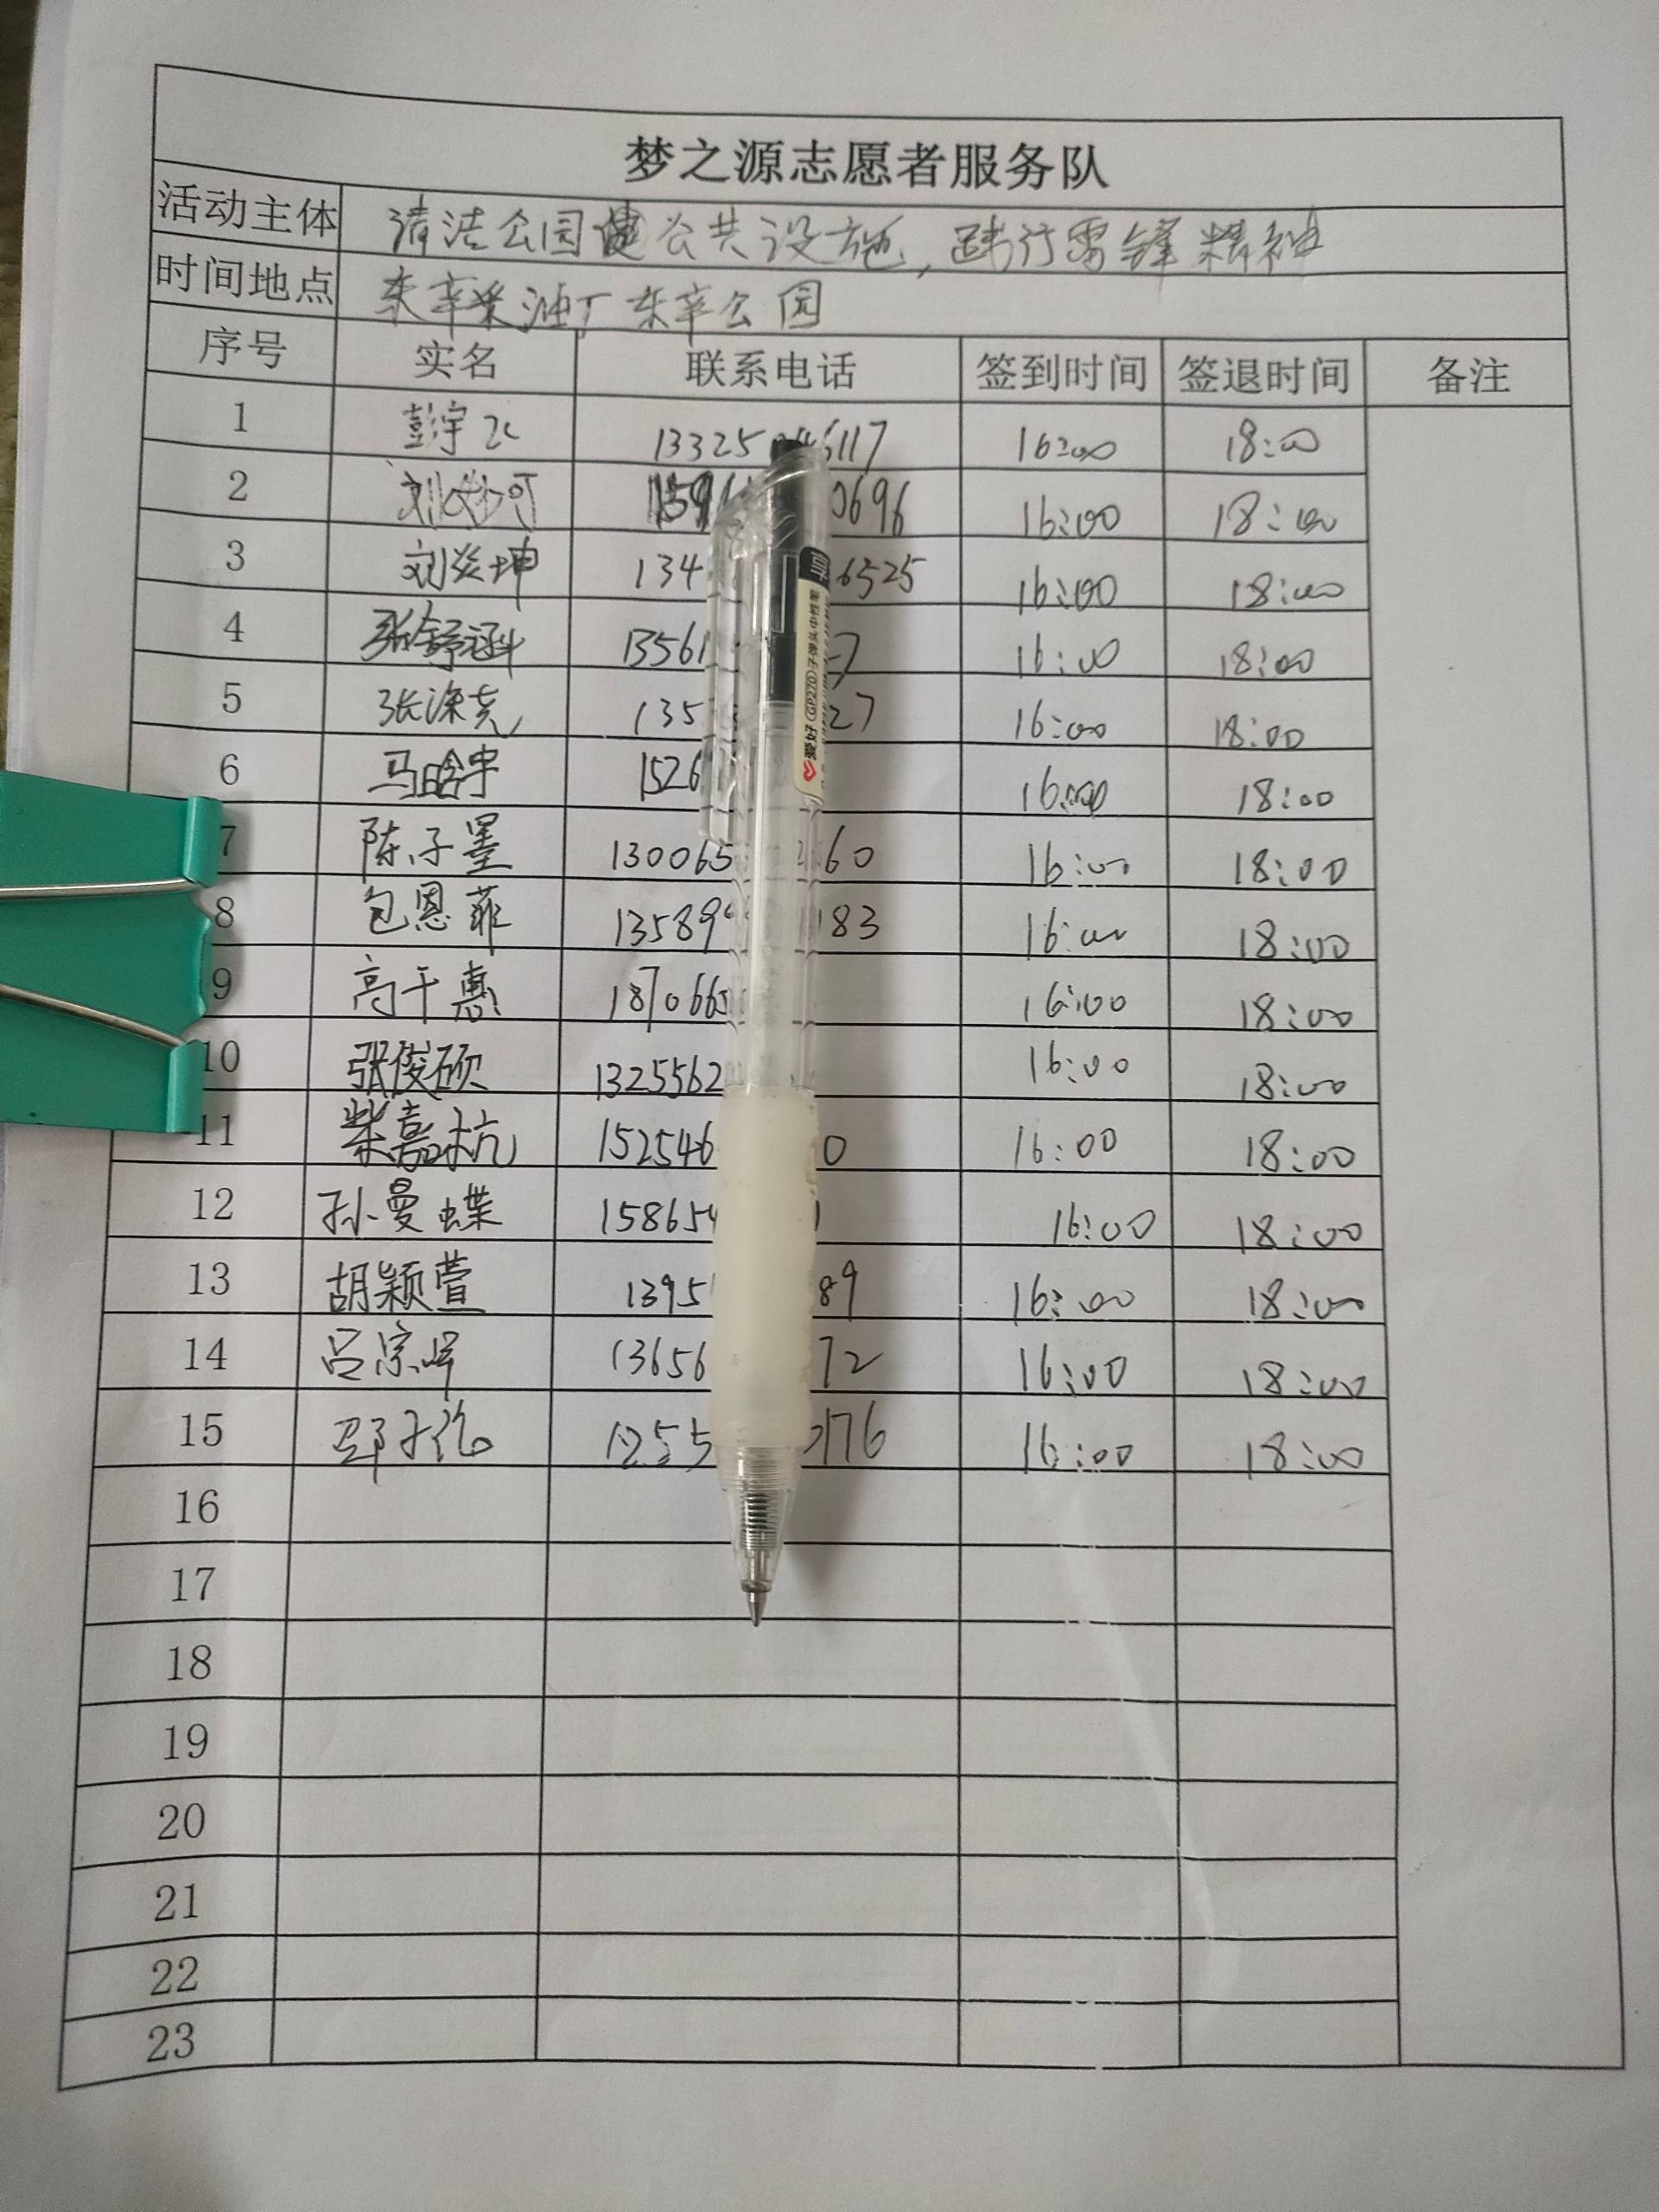 梦之源志愿者服务队
活动主体 清洁公园 公共设施,践行雷锋精神
时间地点 东辛采油厂东辛公园
序号 实名 联系电话 签到时间 签退时间 备注
1 彭宇 13325 6117 16:00 18:00
2 刘 可 0696 16:00 18:00
3 刘炎坤 134 6525 16:00 18:00
4 张舒涵 13561 7 16:00 18:00
5 张 135 27 16:00 18:00
6 马晗宇 1526 16:00 18:00
7 陈子墨 130065 60 16:00 18:00
8 包恩菲 13589 183 16:00 18:00
9 高千惠 1870665 16:00 18:00
10 张俊硕 1325562 16:00 18:00
11 柴嘉杭 152546 0 16:00 18:00
12 孙曼蝶 158654 16:00 18:00
13 胡颖萱 1395 89 16:00 18:00
14 吕宗峄 13656 72 16:00 18:00
15 子 1255 176 16:00 18:00
16
17
18
19
20
21
22
23
爱好 GP270 子弹头中性笔